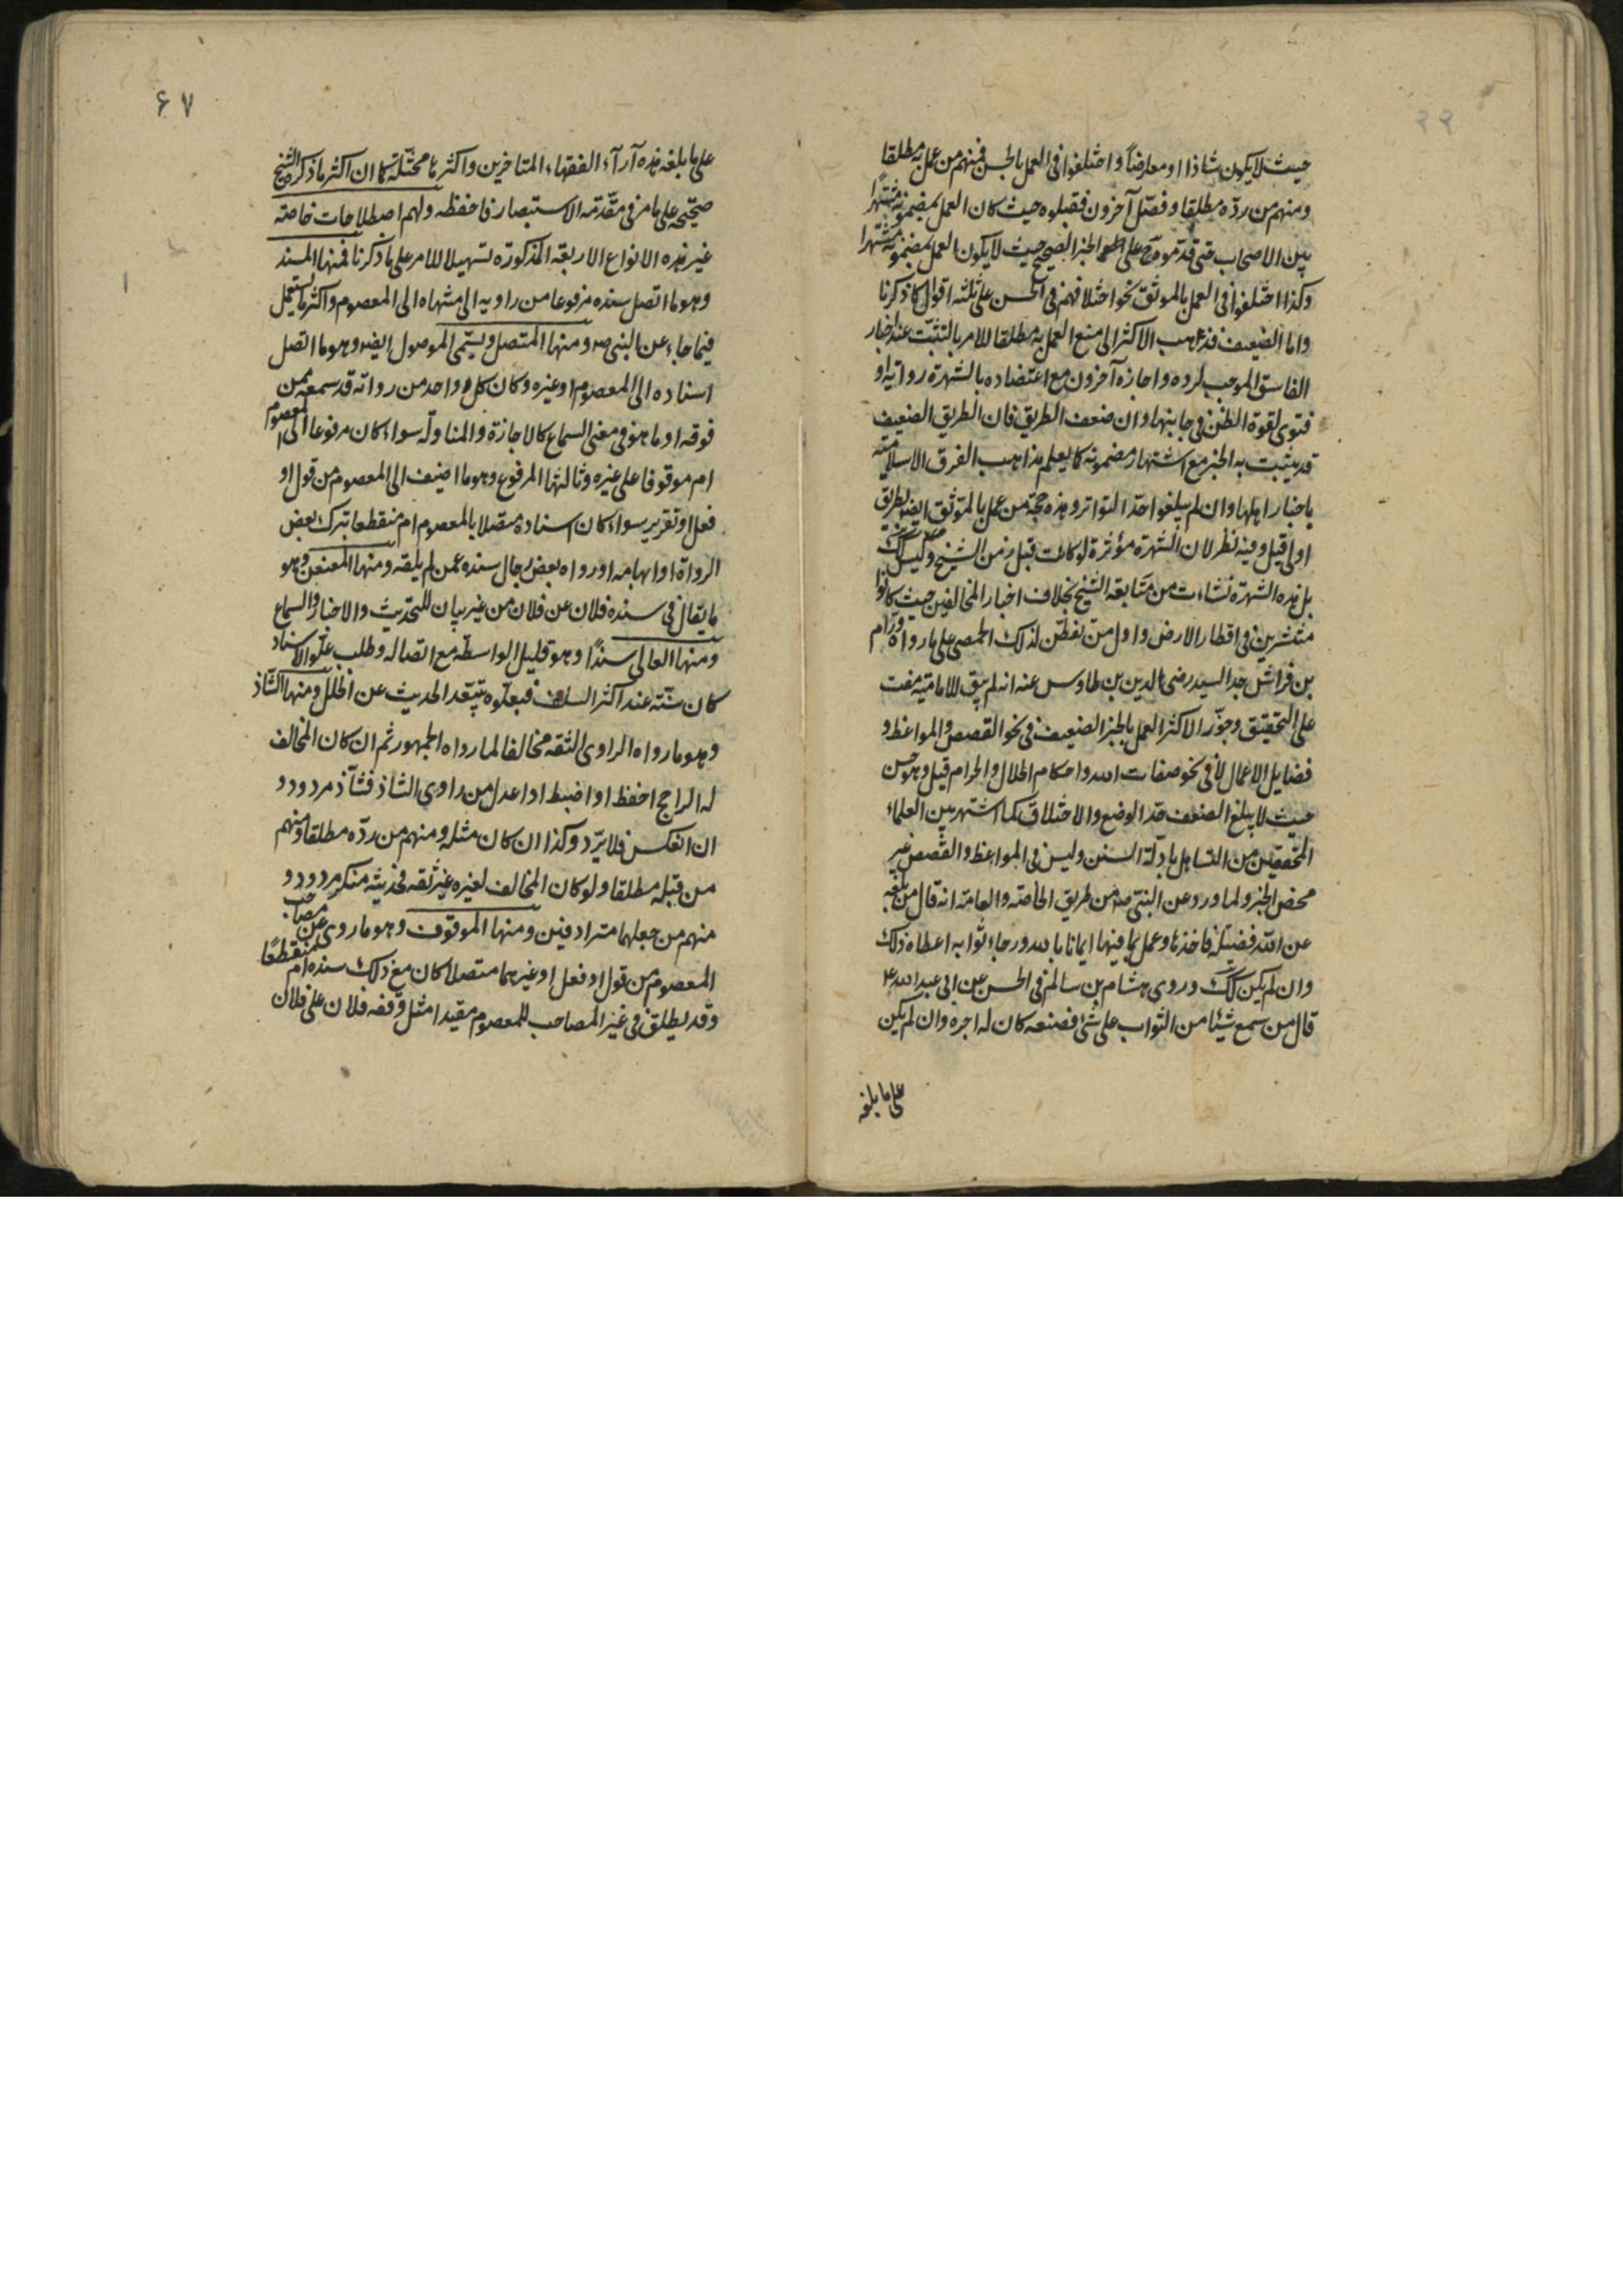 حيث لا يكون شاذا او معارضاً واختلفوا في العمل بالحسن فمنهم من عمل به مطلقا
ومنهم من ردّه مطلقا وفصّل آخرون فقبلوه حيث كان العمل بمضمونه مشتهرا
بين الاصحاب حتى قدّموه على الخبر الصحيح حيث لا يكون العمل بمضمونه مشتهرا
وكذا اختلفوا في العمل بالموثق نحو اختلافهم في الحسن على ثلثه اقوال كما ذكرنا
واما الضعيف فذهب الاكثر الى منع العمل به مطلقا للامر بالتثبّت عند اخبار
الفاسق الموجب لرده واجازه آخرون مع اعتضاده بالشهرة رواية او
فتوى لقوة الظن في جانبها وان ضعف الطريق فان الطريق الضعيف
قد يثبت به الخبر مع اشتهار مضمونه كما يعلم مذاهب الفرق الاسلاميّه
باخبار اهلها وان لم يبلغوا حدّ التواتر وهذه حجّة من عمل بالموثق ايضا بطريق
اولى قيل وفيه نظر لان الشهرة مؤثرة لو كانت قبل زمن الشيخ وليس كك
بل هذه الشهرة نشاءت من متابعة الشيخ بخلاف اخبار المخالفين حيث كانوا
منتشرين في اقطار الارض واول من تفطّن لذلك الحمصي على ما رواه ورّام
بن فراس جد السيد رضي الدين بن طاوس عنه انه لم يبق للاماميّه مفت
على التحقيق وجوّز الاكثر العمل بالخبر الضعيف في نحو القصص والمواعظ و
فضايل الاعمال لا في نحو صفات الله واحكام الحلال والحرام قيل وهو حسن
حيث لا يبلغ الضعف حدّ الوضع والاختلاق لما اشتهر بين العلماء
المحققين من التساهل بادلّة السنن وليس في المواعظ والقصص غير
محض الخبر ولما ورد عن النبي ص من طريق الخاصّه والعامّة انه قال من بلغه
عن الله فضيلة فاخذها وعمل بما فيها ايمانا بالله ورجاء ثوابه اعطاه ذلك
وان لم يكن كك وروى هشام بن سالم في الحسن عن ابي عبد الله ع
قال من سمع شيئا من الثواب على شئ فصنعه كان له اجره وان لم يكن
على ما بلغه
۶۷
على ما بلغه هذه آراء الفقهاء المتاخرين واكثرها محتملة كما ان اكثر ما ذكره الشيخ
على ما مر في مقدّمه الاستبصار فاحفظه ولهم اصطلاحات خاصّه
غير هذه الانواع الاربعة المذكورة تسهيلا للامر على ما ذكرنا فمنها المسند
وهو ما اتصل سنده مرفوعا من راويه الى منتهاه الى المعصوم واكثر ما يستعمل
فيما جاء عن النبي ص ومنها المتصل ويسمّى الموصول ايضا وهو ما اتصل
اسناده الى المعصوم او غيره وكان كل واحد من رواته قد سمعه ممن
فوقه او ما هو في معنى السماع كالاجازة والمناولة سواء كان مرفوعا الى المعصوم
ام موقوفا على غيره وثالثها المرفوع وهو ما اضيف الى المعصوم من قول او
فعل او تقرير سواء كان اسناده متصلا بالمعصوم ام منقطعا بترك بعض
الرواة او ابهامه او رواه بعض رجال سنده عمن لم يلقه ومنها المعنعن وهو
ما يقال في سنده فلان عن فلان من غير بيان للتحديث والاخبار والسماع
ومنها العالي سنداً وهو قليل الواسطه مع اتصاله وطلب علّو الاسناد
كان سنّته عند اكثر السلف فبعلّوه يتبعّد الحديث عن الخلل ومنها الشّاذ
وهو ما رواه الراوي الثقه مخالفا لما رواه الجمهور ثم ان كان المخالف
له الراجح احفظ او اضبط او اعدل من راوي الشاذ فشاّذ مردود و
ان انعكس فلا يرّد وكذا ان كان مثله ومنهم من ردّه مطلقا ومنهم
من قبله مطلقا ولو كان المخالف لغيره غير ثقه فحديثه منكر مردود و
منهم من جعلهما مترادفين ومنها الموقوف وهو ما روى عن مصاحب
المعصوم من قول او فعل او غيرهما متصلا كان مع ذلك سنده ام منقطعًا
وقد يطلق في غير المصاحب للمعصوم مقيدا مثل وقفه فلان على فلان